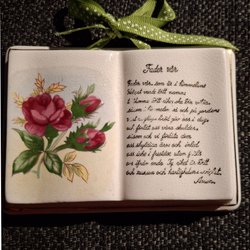 Fader vår
Fader vår, som är i himmelen!
Helgat varde ditt namn;
såsom i himmelen så ock på jorden.
vårt dagliga bröd giv oss i dag;
och förlåt oss våra skulder,
såsom ock vi förlåta dem
oss skyldiga äro; och inled
oss icke i frestelse, utan fräls
oss ifrån ondo. Ty riket är Ditt
och makten och härligheten i evighet.
Amen.